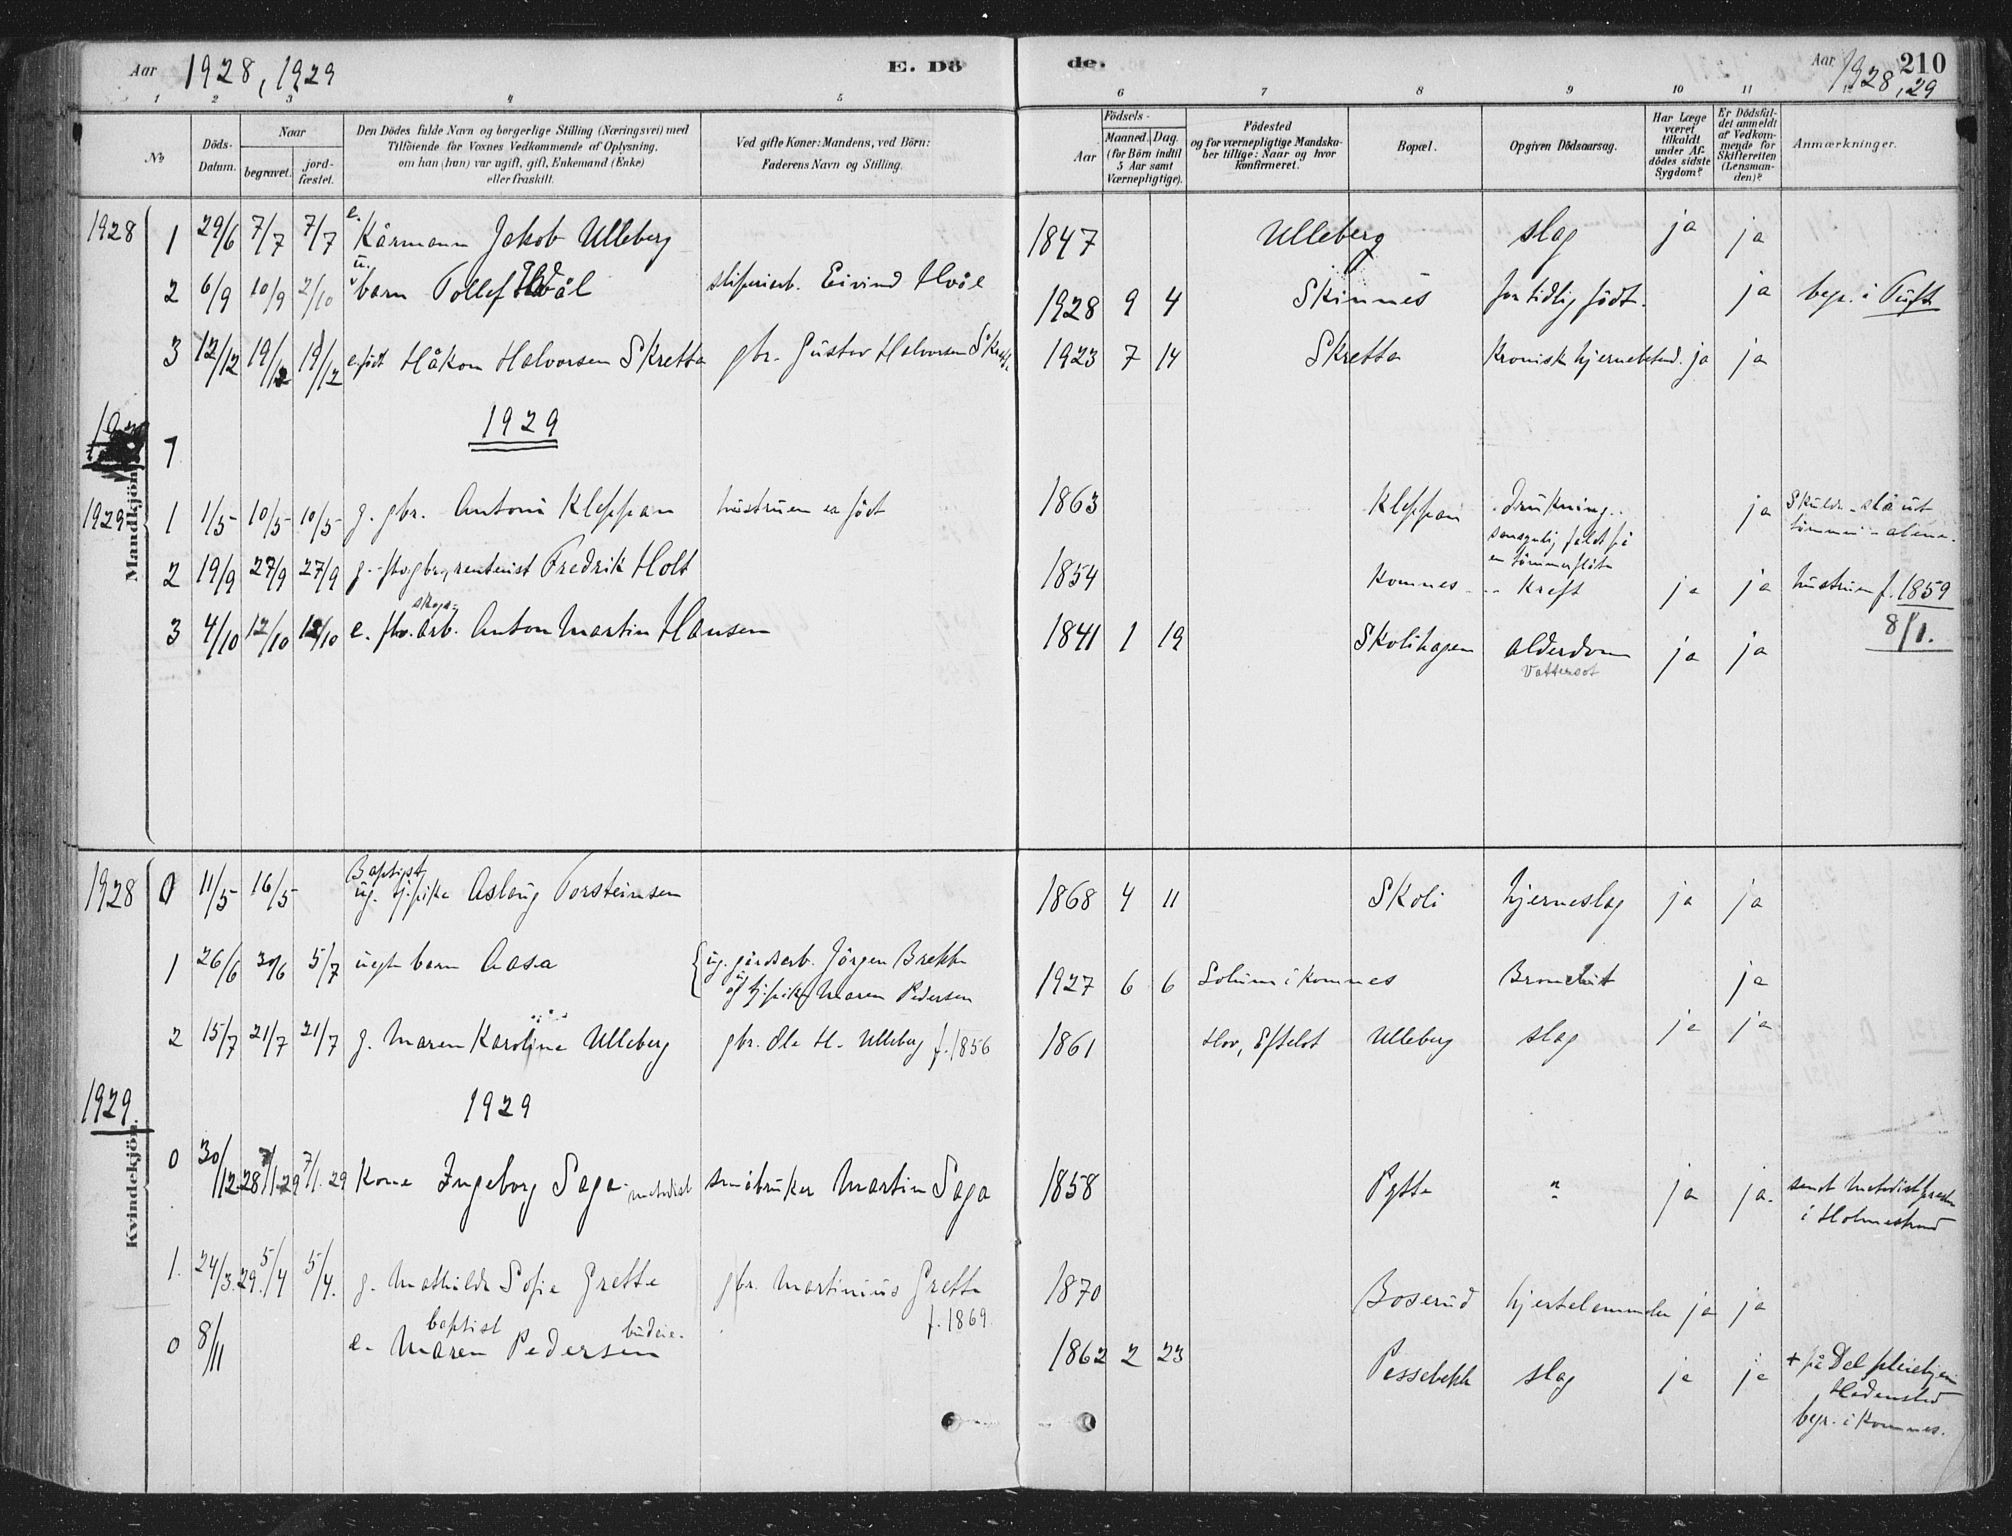 Aar 1928, 1929 E. Dö
de. Aar 1928, 29 210
1 2 3 4 5 6 7 8 9 10 11
No
Döds-Datum.
Naar
begravet.
jord-fæstet.
Den Dödes fulde Navn og borgerlige Stilling (Næringsvei) med
Tilföiende for Voxnes Vedkommende af Oplysning,
om han (hun) var ugift, gift, Enkemand (Enke)
eller fraskilt.
Ved gifte Koner: Mandens, ved Börn:
Faderens Navn og Stilling.
Födsels-
Aar
Maaned. Dag.
(for Börn indtil
5 Aar samt
Værnepligtige).
Födested
og for værnepligtige Mandska-
ber tillige: Naar og hvor
konfirmeret.
Bopæl.
Opgiven Dödsaarsag.
Har Læge
været
tilkaldt
under Af-
dödes sidste
Sygdom?
Er Dödsfal-
det anmeldt
af Vedkom-
mende for
Skifteretten
(Lensman-
den)?
Anmærkninger.
Mandkjön.
1928 1 29/6 7/7 7/7 e. Kårmann Jakob Ulleberg 1847 Ulleberg slag ja ja
2 6/9 10/9 2/10 u. barn Tollef Hvål sliperiarb. Eivind Hvål 1928 9 4 Skinnes for tidlig födt. ja begr. i Tuft
3 12/12 19/12 19/12 Håkon Halvorsen Skretta gbr. Gustav Halvorsen 1923 7 14 Skretta Kronisk ja ja
1929
1
1929 1 1/5 10/5 10/5 g. gbr. Anton Kleppan hustruen er födt 1863 Kleppan drukning ja
en tömmerflåte
2 19/9 27/9 27/9 g. rentenist Fredrik Holt 1854 Komnes Kreft ja ja hustruen f. 1859
8/1.
3 4/10 12/10 12/10 e. skogs-arb. Anton Martin Hansen 1841 1 19 Skolihagen alderdom ja ja
Vattersot
Kvindekjön.
1928 0 11/5 16/5 Baptist
ug. Aslaug Torsteinsen 1868 4 11 Skoli hjerneslag ja ja
1 26/6 30/6 5/7 uegte barn Aasa ug. gårdsarb. Jörgen Brekke
Maren Pedersen 1927 6 6 Solum i Komnes Bronchit ja
2 15/7 21/7 21/7 g. Maren Karoline Ulleberg gbr. Ole H. Ulleberg f. 1856 1861 Hov, Efteløt Ulleberg slag ja ja
1929. 1929
0 30/12 28 7/1 29 7/1 29 Kone Ingeborg Saga metodist småbruker Martin Saga 1858 Pytte " ja ja. sendt Metodistpresten
i Holmestrand
1. 24/3 29. 5/4 5/4. g. Mathilde Sofie Grette gbr. Martinius Grette
f. 1869. 1870 Boserud ja ja
0 8/11 baptist budeie.
e. Maren Pedersen 1862 2 23 slag ja ja + på Det pleiehjem
Hedenstad
begr. i Komnes.